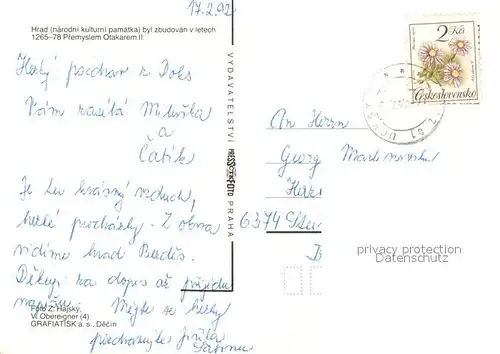 17.2.92
Hrad (národní kulturní památka) byl zbudován v letech
1265–78 Přemyslem Otakarem II.
Hezký pozdrav z Doks
Vám zasílá Miluška
a
Čatík
Je tu krásný vzduch,
hezké procházky. Z okna
vidíme hrad Bezděz.
Děkuji za dopis až přijedu
napíšu. Mějte se hezky
Foto Z. Hajský,
Vl. Obereigner (4)
GRAFIATISK a. s., Děčín
VYDAVATELSTVÍ PRESSFOTO PRAHA
2 Kčs
Československo
An Herrn
Georg
6374
privacy protection
Datenschutz